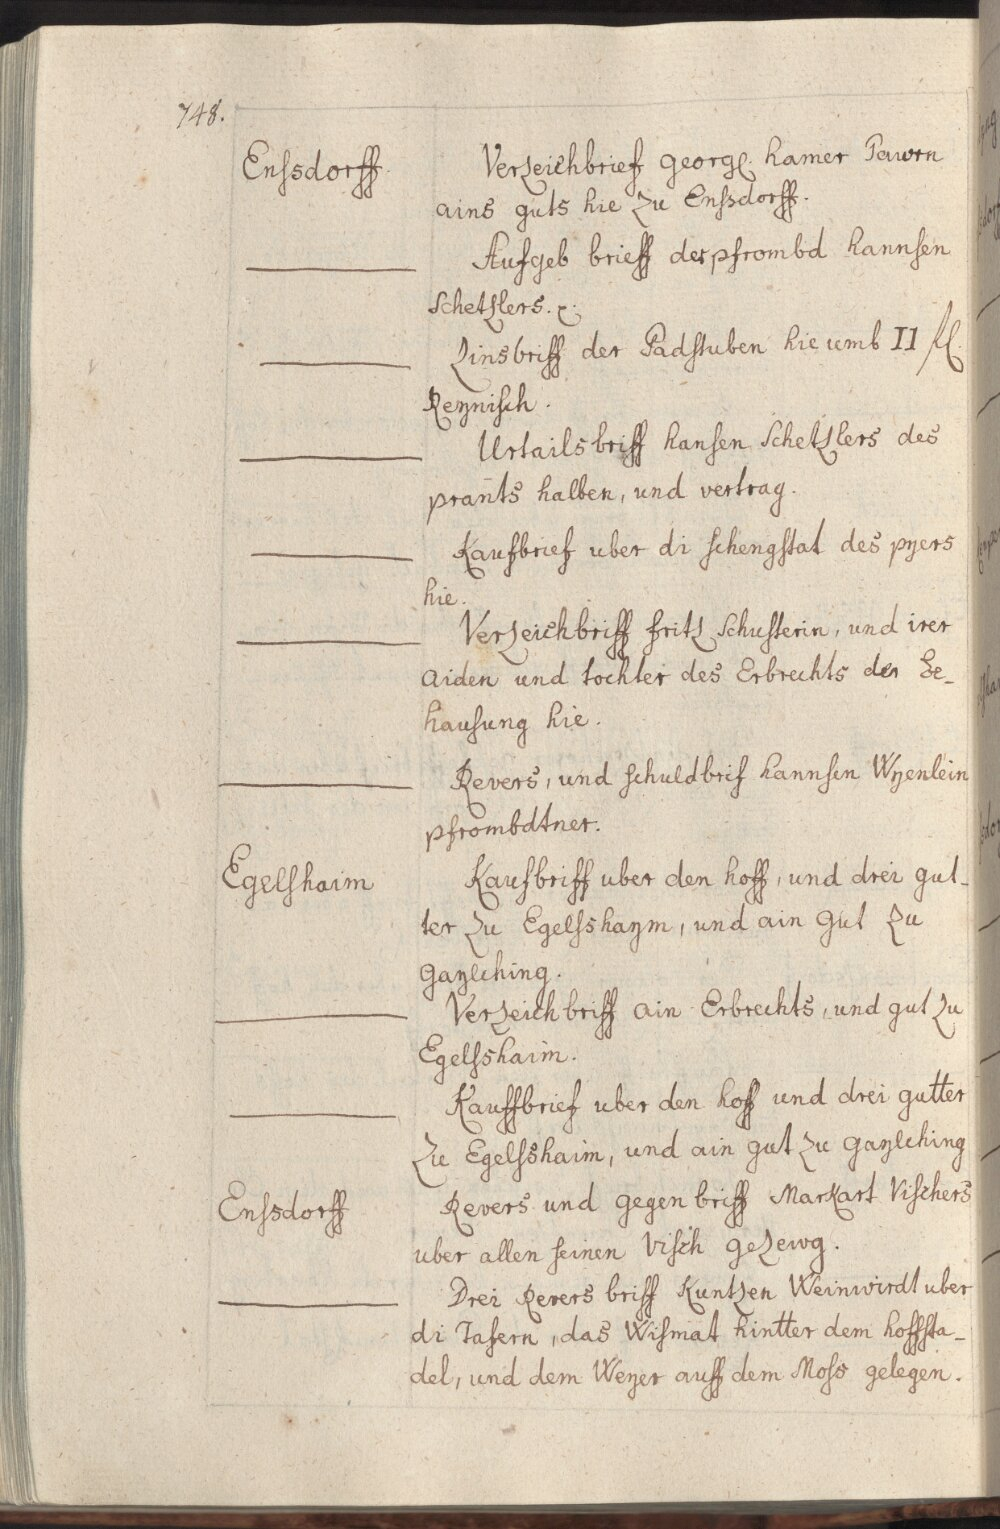 748.
Ensdorff. Verzeichbrief georg. hamer Pawrn
ains guts hie zu Ensdorff.
Aufgeb brieff der pfrombd hannsen
Schetzlers.
Zinsbriff der Padstuben hie umb II fl.
Reynisch.
Urtailsbriff hansen Schetzlers des
prants halben, und vertrag.
Kaufbrief uber di schengstat des pyers
hie.
Verzeichbriff fritz Schusterin, und irer
aiden und tochter des Erbrechts der Be-
hausung hie.
Revers, und schuldbrif hannsen Wyenlein
pfrombdtner.
Egelshaim Kaufbriff uber den hoff, und drei gut-
ter zu Egelsshaym, und ain gut zu
gaylching.
Verzeichbriff ain Erbrechts, und gut zu
Egelsshaim.
Kauffbrief uber den hoff und drei gutter
zu Egelsshaim, und ain gut zu gaylching
Ensdorff Revers und gegen briff Markart Vischers
uber allen seinen Visch gezewg.
Drei Revers briff Kuntzen Weinwirdt uber
di Tafern, das Wismat hintter dem hoffsta-
del, und dem Weyer auff dem Moss gelegen.